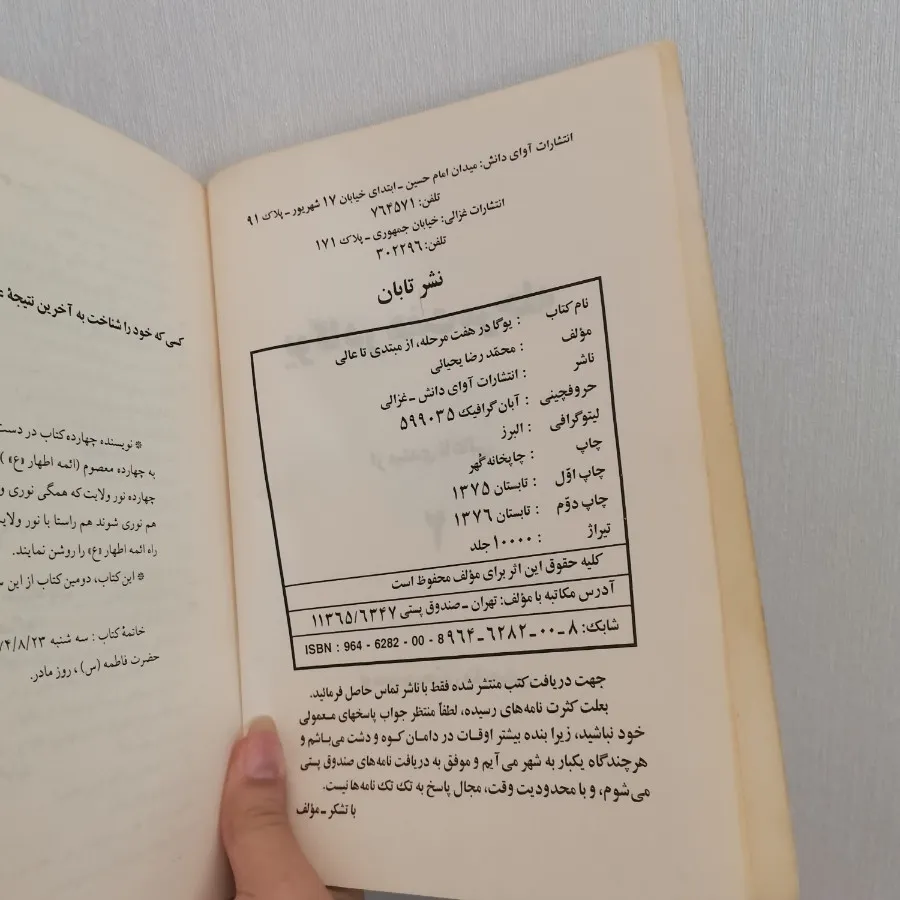 انتشارات آوای دانش: میدان امام حسین ـ ابتدای خیابان ۱۷ شهریور ـ پلاک ۹۱
تلفن: ۷۶۴۵۷۱
انتشارات غزالی: خیابان جمهوری ـ پلاک ۱۷۱
تلفن: ۳۰۲۲۹۶
نشر تابان
نام کتاب : یوگا در هفت مرحله، از مبتدی تا عالی
مؤلف : محمّد رضا یحیائی
ناشر : انتشارات آوای دانش ـ غزالی
حروفچینی : آبان گرافیک ۵۹۹۰۳۵
لیتوگرافی : البرز
چاپ : چاپخانه گهر
چاپ اوّل : تابستان ۱۳۷۵
چاپ دوّم : تابستان ۱۳۷۶
تیراژ : ۱۰۰۰۰ جلد
کلیه حقوق این اثر برای مؤلف محفوظ است
آدرس مکاتبه با مؤلف: تهران ـ صندوق پستی ۱۱۳۶۵/۶۳۴۷
شابک: ۸ ـ ۰۰ ـ ۶۲۸۲ ـ ۹۶۴ ISBN : 964 - 6282 - 00 - 8
جهت دریافت کتب منتشر شده فقط با ناشر تماس حاصل فرمائید.
بعلت کثرت نامه‌های رسیده، لطفاً منتظر جواب پاسخهای معمولی
خود نباشید، زیرا بنده بیشتر اوقات در دامان کوه و دشت می‌باشم و
هرچندگاه یکبار به شهر می‌آیم و موفق به دریافت نامه‌های صندوق پستی
می‌شوم، و با محدودیت وقت، مجال پاسخ به تک تک نامه‌ها نیست.
با تشکر ـ مؤلف
کسی که خود را شناخت به آخرین نتیجهٔ
* نویسنده چهارده کتاب در دست
به چهارده معصوم (ائمه اطهار «ع»)
چهارده نور ولایت که همگی نوری و
هم نوری شوند هم راستا با نور ولایت
راه ائمه اطهار «ع» را روشن نمایند.
* این کتاب، دومین کتاب از این
خاتمهٔ کتاب : سه شنبه ۷۴/۸/۲۳
حضرت فاطمه (س) ، روز مادر.